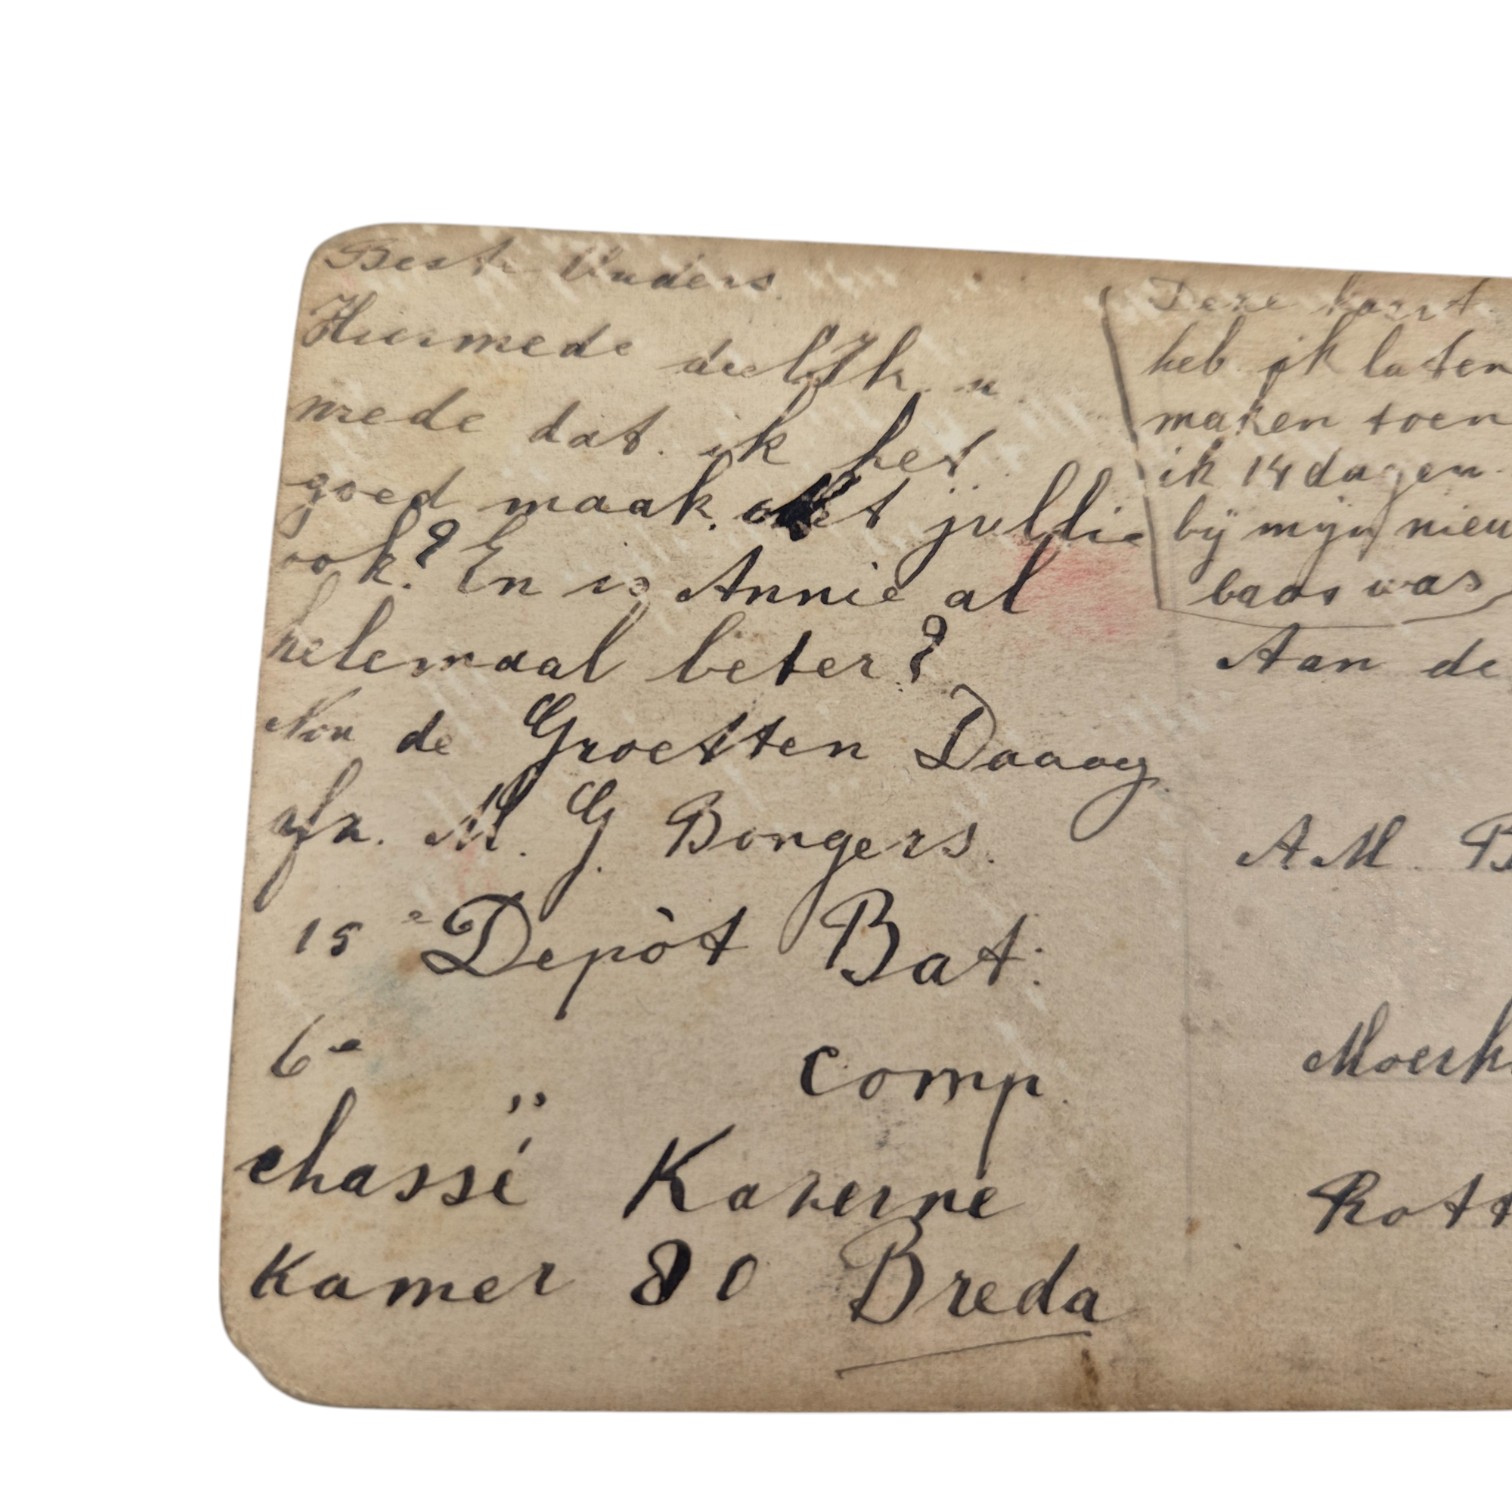 Beste Ouders
Hiermede deel ik u
mede dat ik het
goed maak. met jullie
ook? En is Annie al
helemaal beter?
Nou de Groetten Daaag
M. G Bongers.
15e Depòt Bat.
6e " comp.
chassé Kazerne
Kamer 80 Breda
Deze kaart
heb ik laten
maken toen
ik 14 dagen
bij mijn nieu
baas was
Aan de
A M B
Moerk
Rott